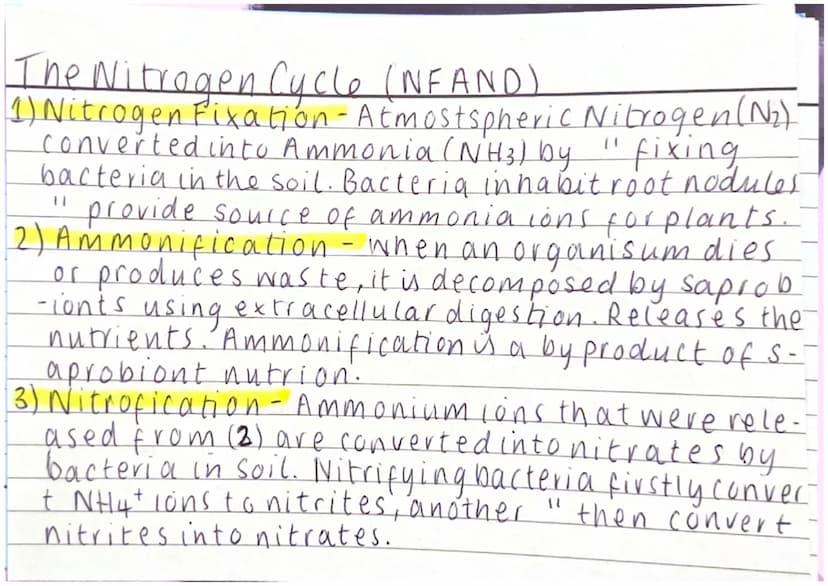 The Nitrogen Cycle (NFAND)
1) Nitrogen Fixation - Atmostspheric Nitrogen (N2)
converted into Ammonia (NH3) by " fixing
bacteria in the soil. Bacteria inhabit root nodules
" provide source of ammonia ions for plants.
2) Ammonification - when an organisum dies
or produces waste, it is decomposed by saprob
-ionts using extracellular digestion. Releases the
nutrients. Ammonification is a byproduct of s-
aprobiont nutrion.
3) Nitrofication - Ammonium ions that were rele-
ased from (2) are converted into nitrates by
bacteria in soil. Nitrifying bacteria firstly conver
t NH4+ ions to nitrites, another " then convert
nitrites into nitrates.